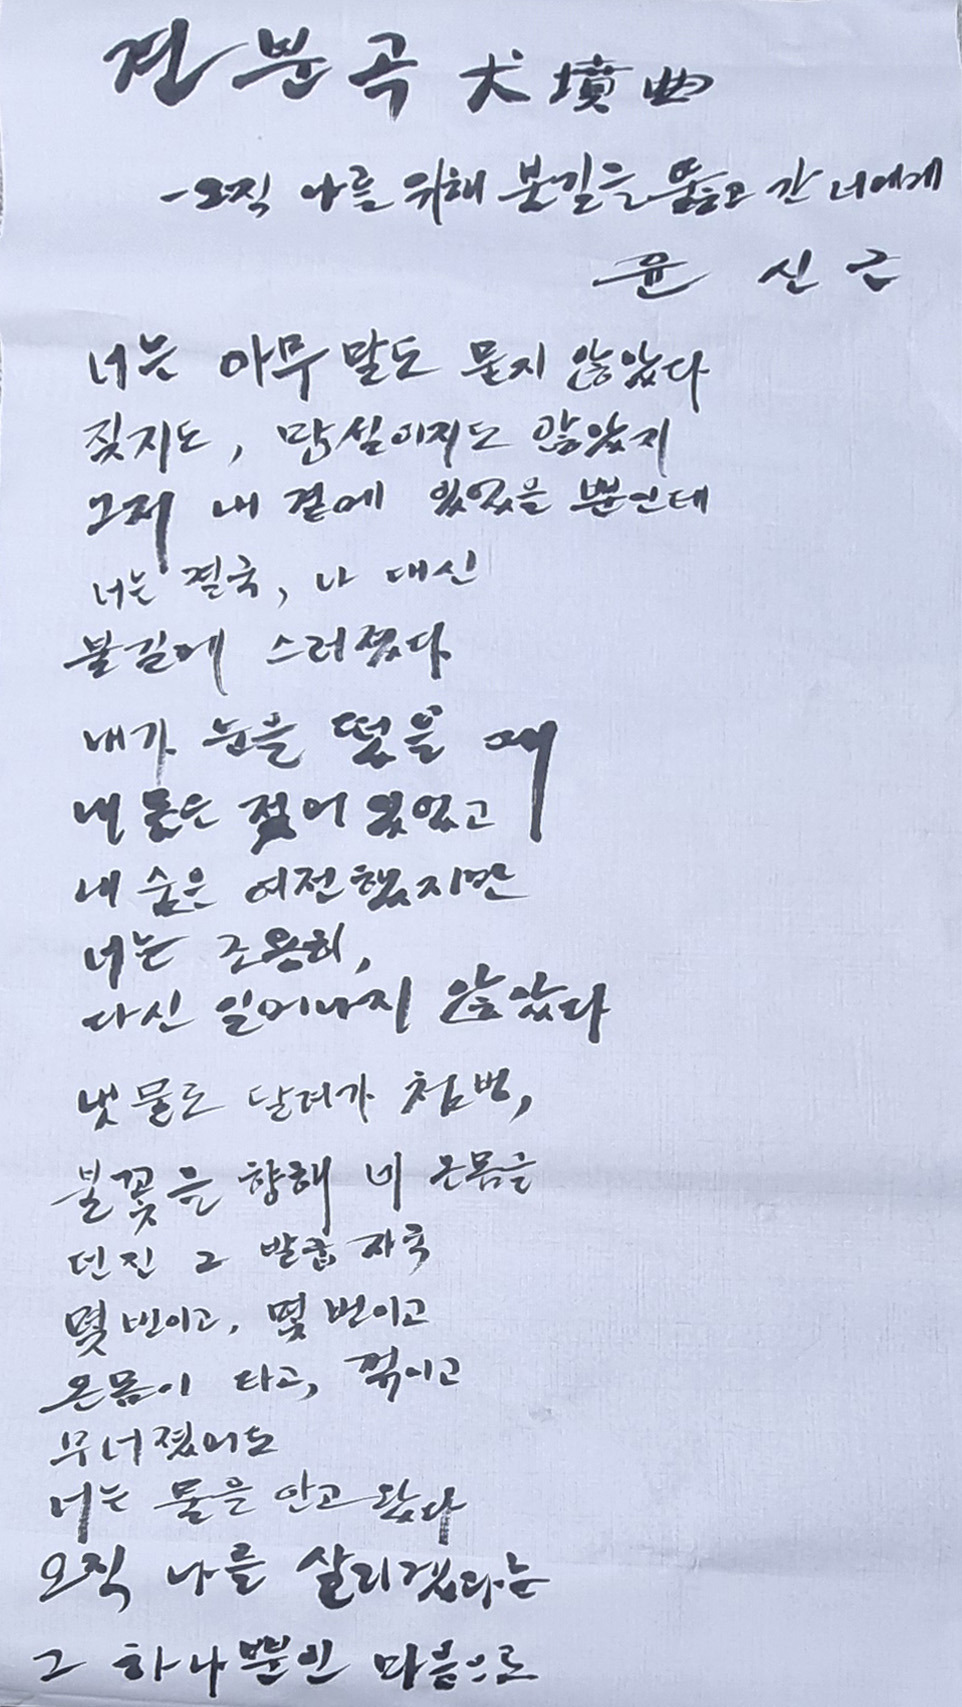 견분곡 犬墳曲
- 오직 나를 위해 불길을 뚫고 간 너에게
윤 신 근
너는 아무 말도 묻지 않았다
짖지도, 망설이지도 않았지
그저 내 곁에 있었을 뿐인데
너는 결국, 나 대신
불길에 스러졌다
내가 눈을 떴을 때
내 몸은 젖어 있었고
내 숨은 여전했지만
너는 조용히,
다신 일어나지 않았다
냇물로 달려가 첨벙,
불꽃을 향해 네 온몸을
던진 그 발굽 자국
몇 번이고, 몇 번이고
온몸이 타고, 꺾이고
무너졌어도
너는 물을 안고 왔다
오직 나를 살리겠다는
그 하나뿐인 마음으로